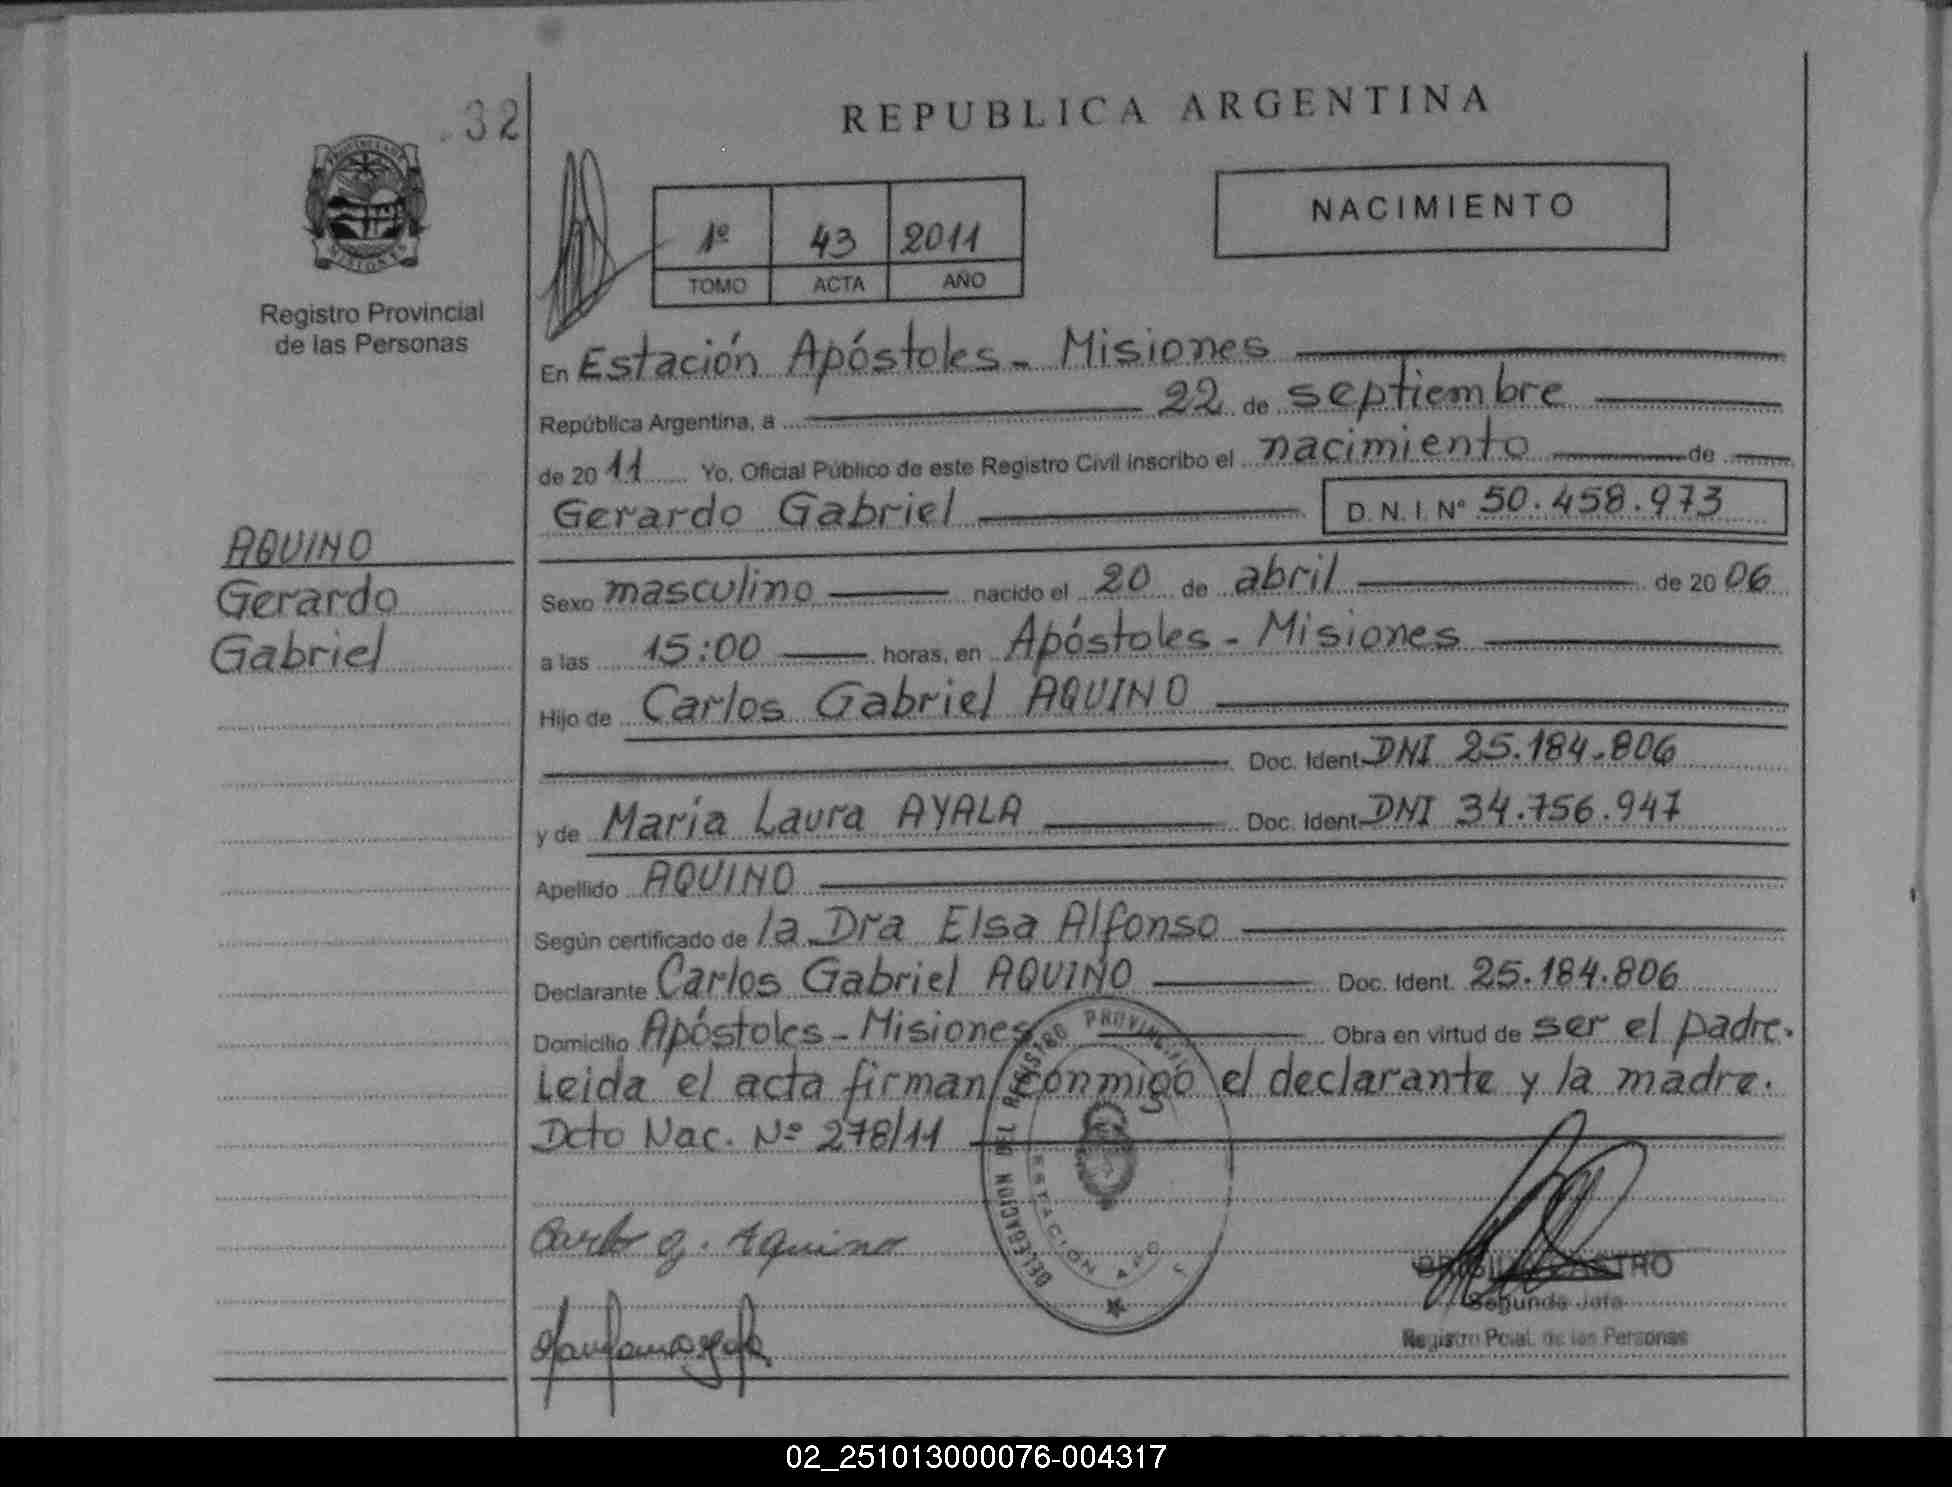 32
REPUBLICA ARGENTINA
NACIMIENTO
1º 43 2011
TOMO ACTA AÑO
Registro Provincial
de las Personas
AQUINO
Gerardo
Gabriel
En Estación Apóstoles - Misiones
República Argentina, a 22 de septiembre
de 2011 Yo, Oficial Público de este Registro Civil inscribo el nacimiento de
Gerardo Gabriel D.N.I. Nº 50.458.973
Sexo masculino nacido el 20 de abril de 2006
a las 15:00 horas, en Apóstoles - Misiones
Hijo de Carlos Gabriel AQUINO
Doc. Ident. DNI 25.184.806
y de María Laura AYALA Doc. Ident. DNI 34.756.947
Apellido AQUINO
Según certificado de la Dra Elsa Alfonso
Declarante Carlos Gabriel AQUINO Doc. Ident. 25.184.806
Domicilio Apóstoles - Misiones Obra en virtud de ser el padre.
Leida el acta firman conmigo el declarante y la madre.
Dcto Nac. Nº 278/11
DELEGACION DEL REGISTRO PROVINCIAL
ESTACION APO
Carlos G. Aquino
Segunda Jefa
Registro Pcial. de las Personas
02_251013000076-004317